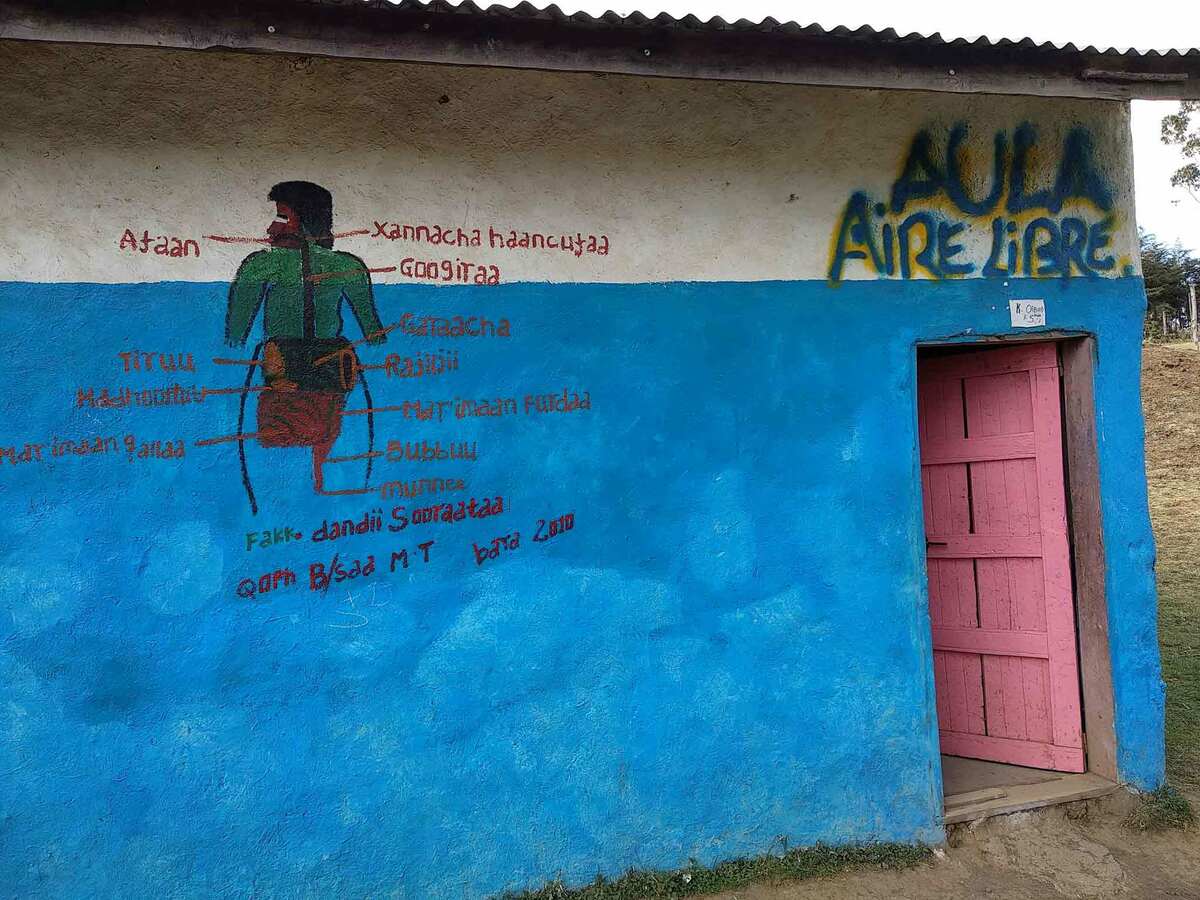 AULA
AiRE LiBRE.
K. Oromo
Afaan
Xannacha haancufaa
Googiraa
Garaacha
Tiruu
Rajijii
Hadhooftuu
Mar'imaan Furdaa
Mar'imaan qallaa
Bubbuu
Munnee
Fakk. dandii Sooraataa
Qoph B/saa M.T bara 2010